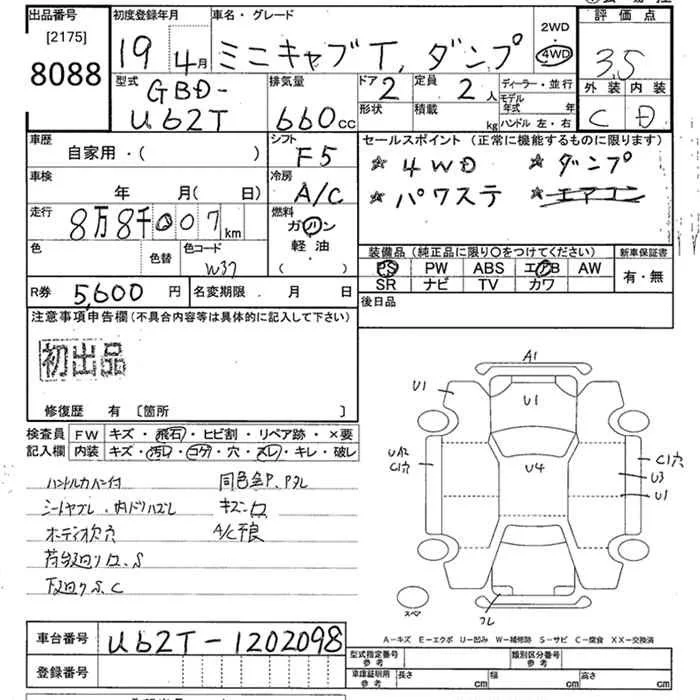 出品番号
[2175]
8088
初度登録年月
19年4月
車名・グレード
ミニキャブT. ダンプ
2WD
・
4WD
評価点
3.5
外装 内装
C D
型式
GBD-
U62T
排気量
660cc
ドア
2
定員
2人
形状
積載
kg
ディーラー・並行
モデル年式 年
ハンドル 左・右
車歴
自家用・( )
シフト
F5
車検
年 月( 日)
冷房
A/C
走行
8万8千007km
燃料
ガソリン
軽油
( )
色
色替
色コード
W37
セールスポイント (正常に機能するものに限ります)
☆ 4WD ☆ ダンプ
☆ パワステ ☆ エアコン
装備品 (純正品に限り○をつけてください)
PS PW ABS エアB AW
SR ナビ TV カワ
新車保証書
有・無
後日品
R券 5,600 円
名変期限. 月 日
注意事項申告欄(不具合内容等は具体的に記入して下さい)
初出品
修復歴 有 〔箇所 〕
検査員
記入欄
FW キズ・飛石・ヒビ割・リペア跡・×要
内装 キズ・汚レ・コゲ・穴・スレ・キレ・破レ
ハンドルカバー付
シートヤブレ・内ドリハズレ
オーディオ欠穴
荷台廻りロ、S
下廻りS、C
同色全P、Pタレ
A/C不良
A1
U1
U1
U4
C1穴
C1穴
U3
U1
フレ
スペア
A-キズ E-エクボ U-凹み W-補修跡 S-サビ C-腐食 XX-交換済
車台番号 U62T-1202098
登録番号
型式指定番号
参考
類別区分番号
参考
車庫証明用
参考
長さ cm
幅 cm
高さ cm